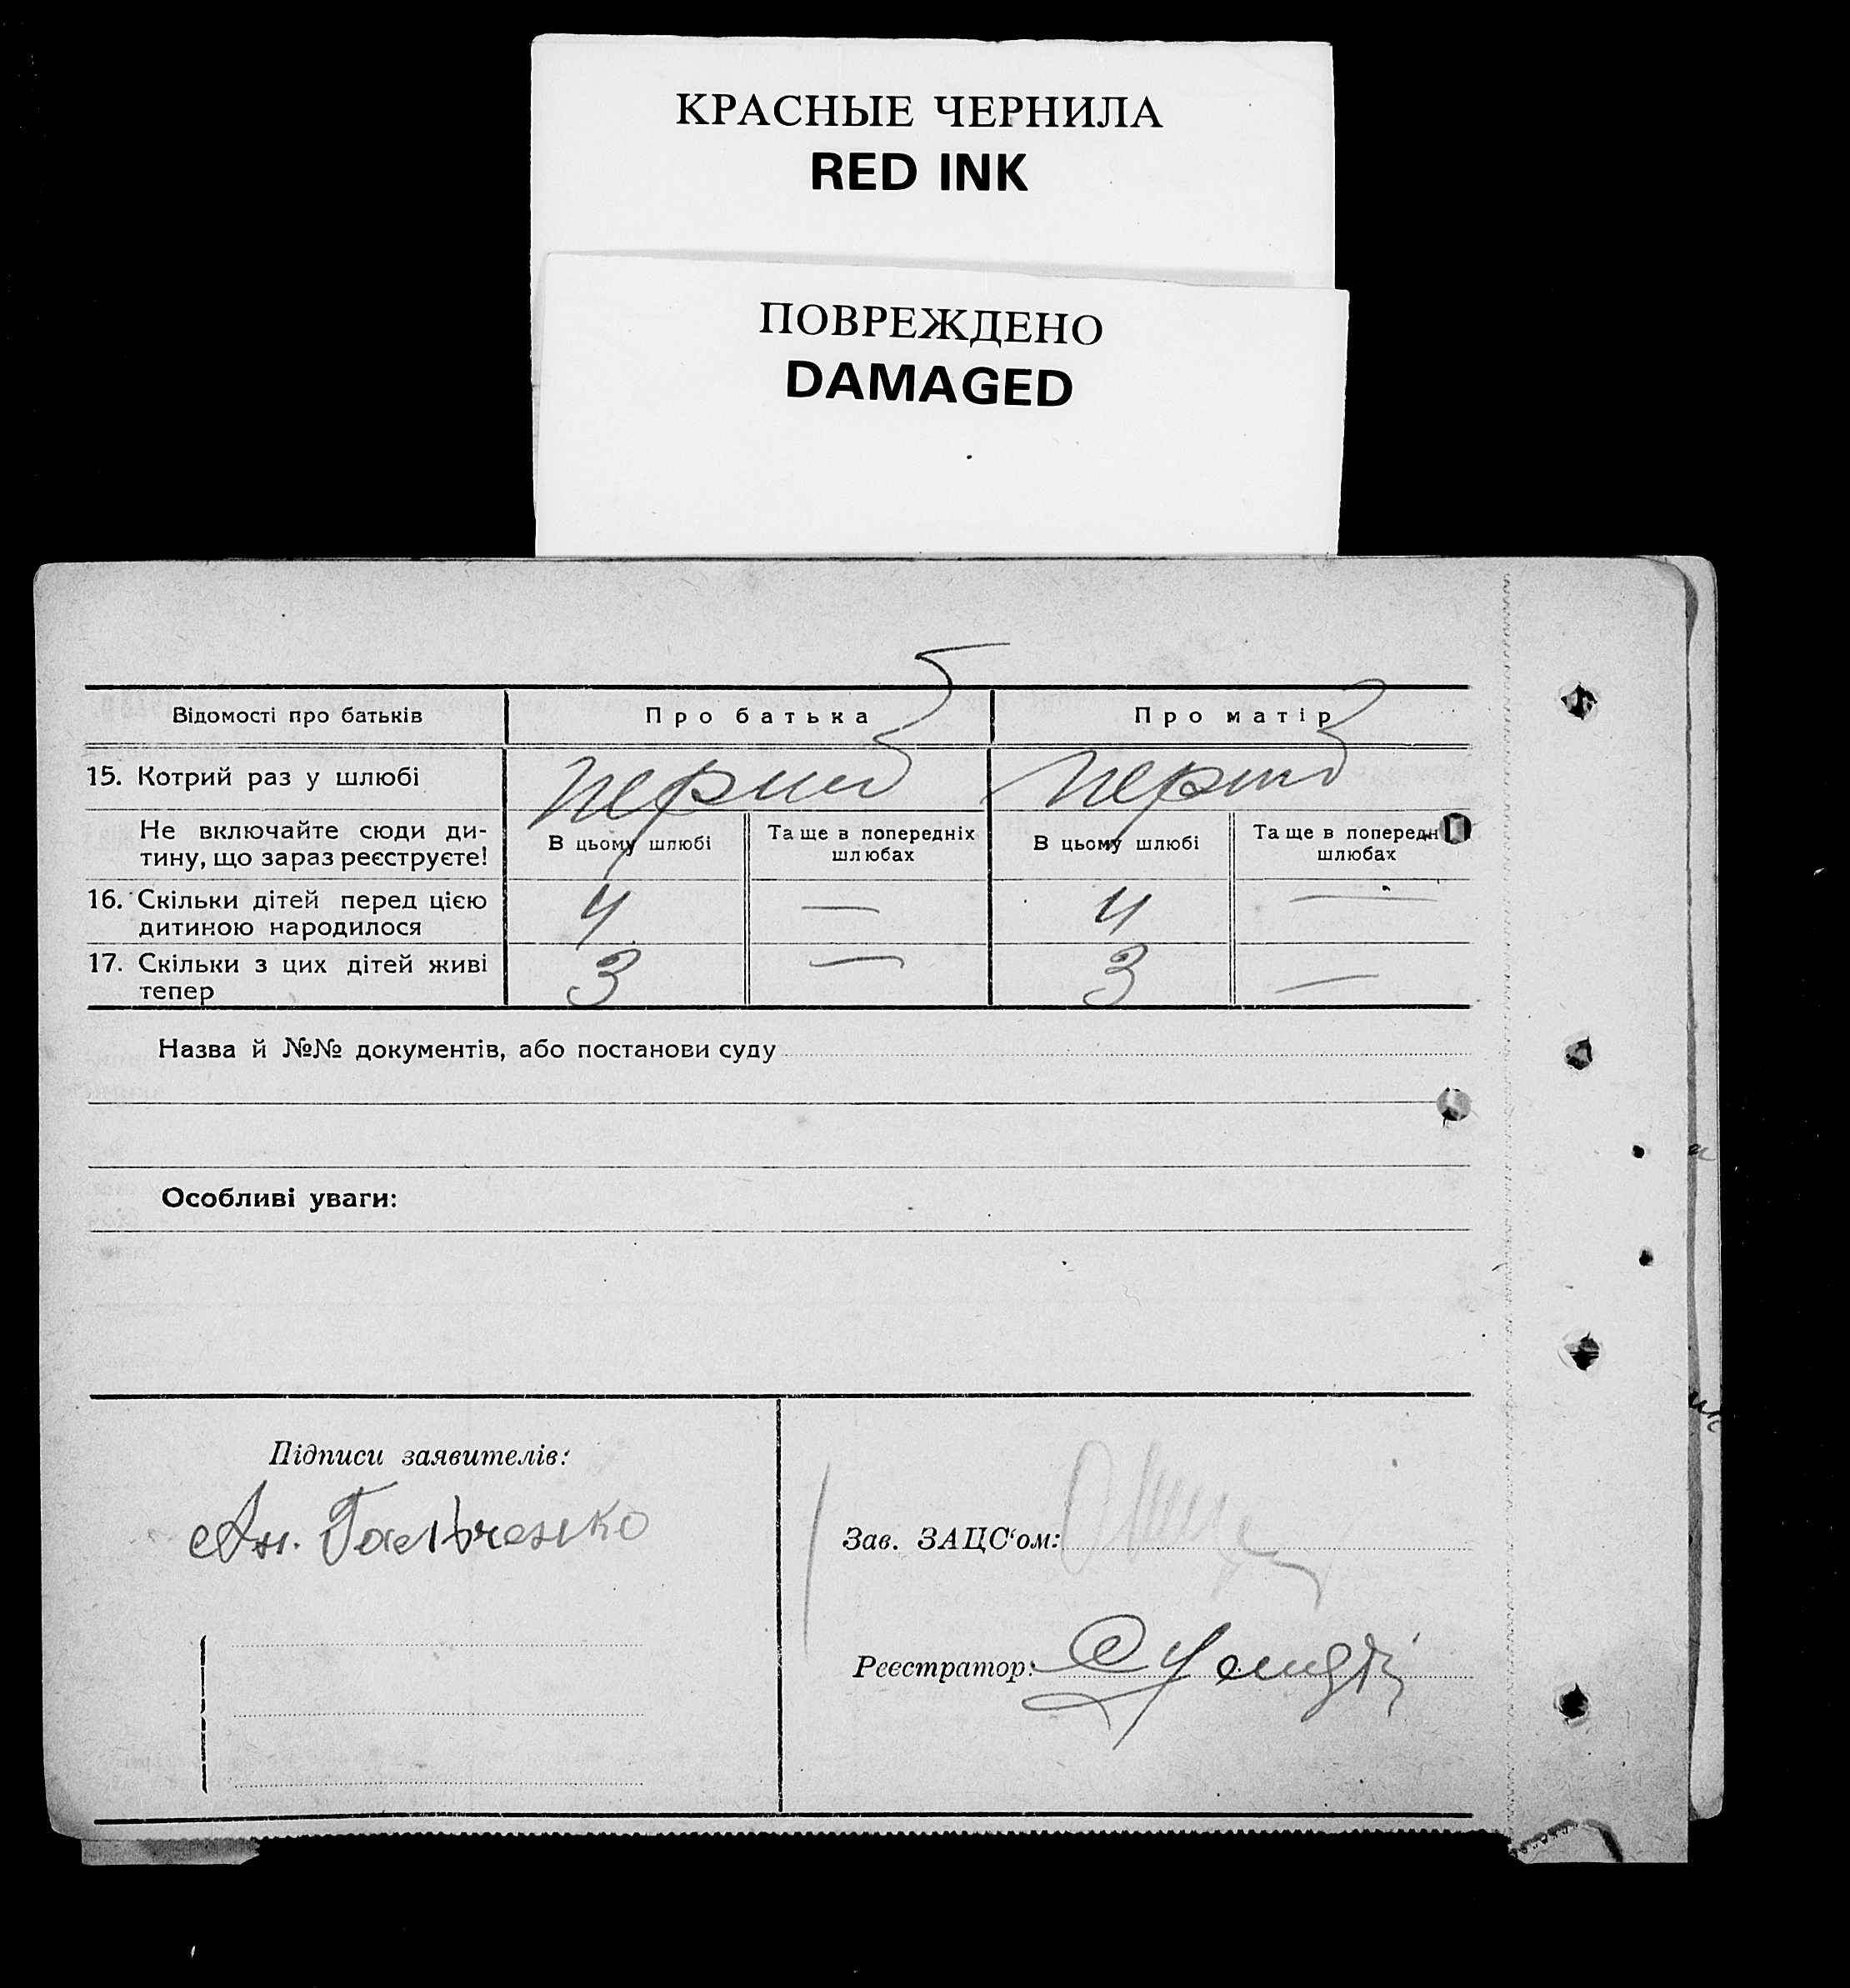 КРАСНЫЕ ЧЕРНИЛА
RED INK
ПОВРЕЖДЕНО
DAMAGED
Відомості про батьків Про батька Про матір
15. Котрий раз у шлюбі
Не включайте сюди ди-
тину, що зараз реєструєте!
В цьому шлюбі
Та ще в попередніх
шлюбах
В цьому шлюбі
Та ще в попередн
шлюбах
16. Скільки дітей перед цією
дитиною народилося
4 — 4 —
17. Скільки з цих дітей живі
тепер
3 — 3 —
Назва й №№ документів, або постанови суду
Особливі уваги:
Підписи заявителів:
Ан. Гальченко
Зав. ЗАЦС‘ом:
Реєстратор: